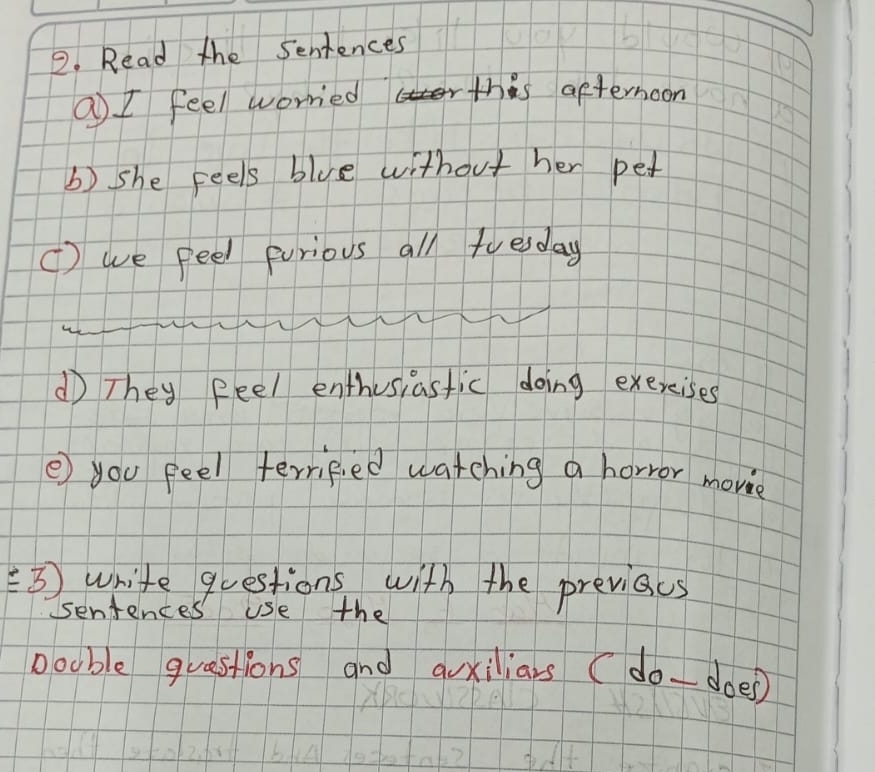 2. Read the sentences
a) I feel worried this afternoon
b) she feels blue without her pet
c) we feel furious all tuesday
d) They feel enthusiastic doing exercises
e) you feel terrified watching a horror movie
3) write questions with the previous
sentences use the
Double questions and auxiliars (do-does)